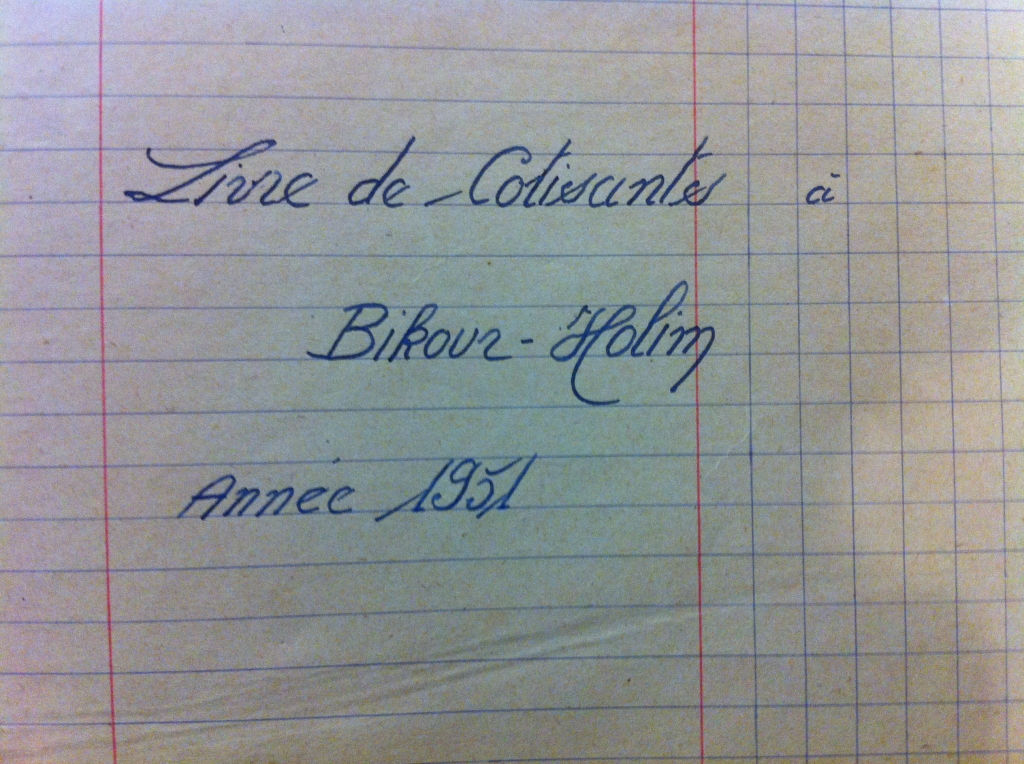 Livre de Cotisantes à
Bikour-Holim
Année 1951